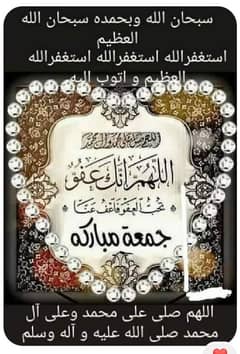 سبحان الله وبحمده سبحان الله
العظيم
استغفرالله استغفرالله استغفرالله
العظيم و اتوب اليه
اللهم صل على محمد وال محمد
اللهم انك عفو
تحب العفو فاعف عنا
جمعة مباركه
اللهم صلى على محمد وعلى آل
محمد صلى الله عليه و آله وسلم